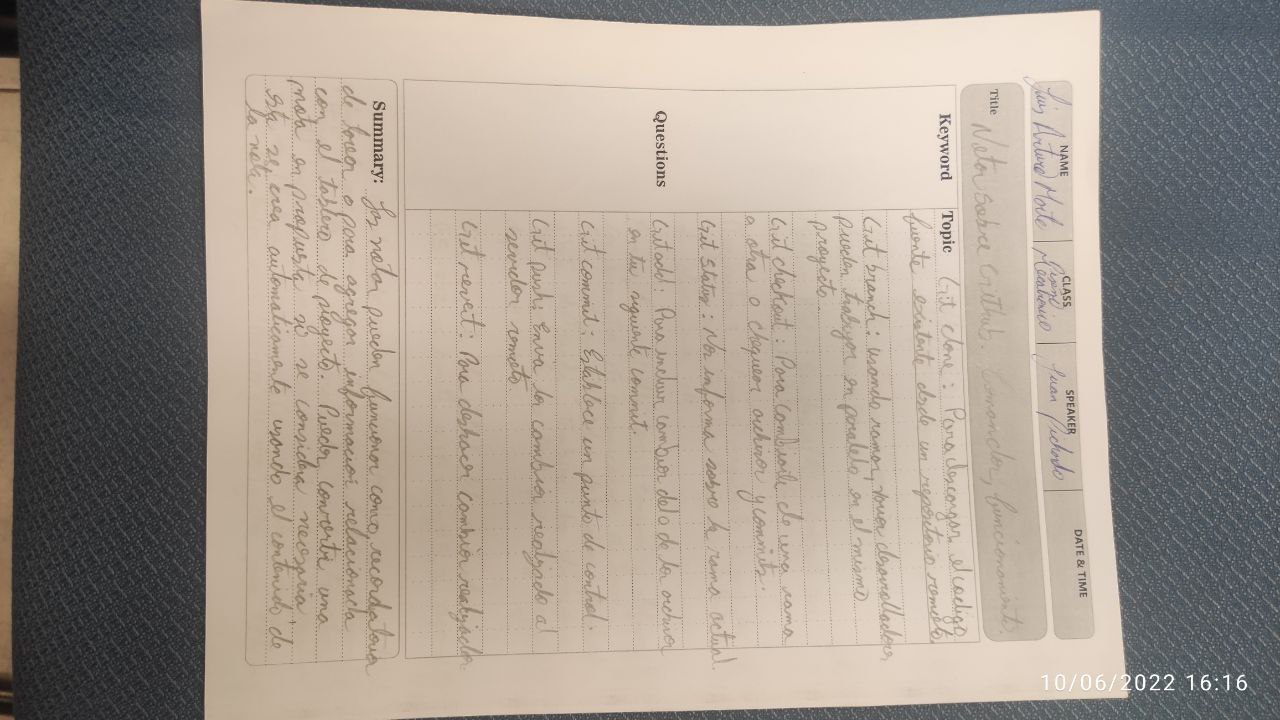 NAME
CLASS
SPEAKER
DATE & TIME
Luis Arturo
Juan
Title Notas sobre GitHub. Comandos, funcionamiento.
Keyword
Topic Git clone: Para descargar el codigo
fuente existente desde un repositorio remoto.
Git branch: usando ramas, varios desarrolladores
pueden trabajar en paralelo en el mismo
proyecto.
Git checkout: Para de una rama
a otra o chequear archivos y commits.
Git Status: Nos informa sobre la rama actual.
Questions
Git add: Para incluir cambios de los archivos
en tu siguiente commit.
Git commit: Establece un punto de control.
Git push: Envia los cambios realizado al
servidor remoto
Git revert: Para deshacer cambios realizados.
Summary: Las notas pueden funionar como recordatorios
de tareas o para agregar informacion relacionada
con el tablero de proyecto. Puedes convertir una
nota en propuesta si se considera necesario,
esta se crea automaticamente usando el contenido de
la nota.
10/06/2022 16:16